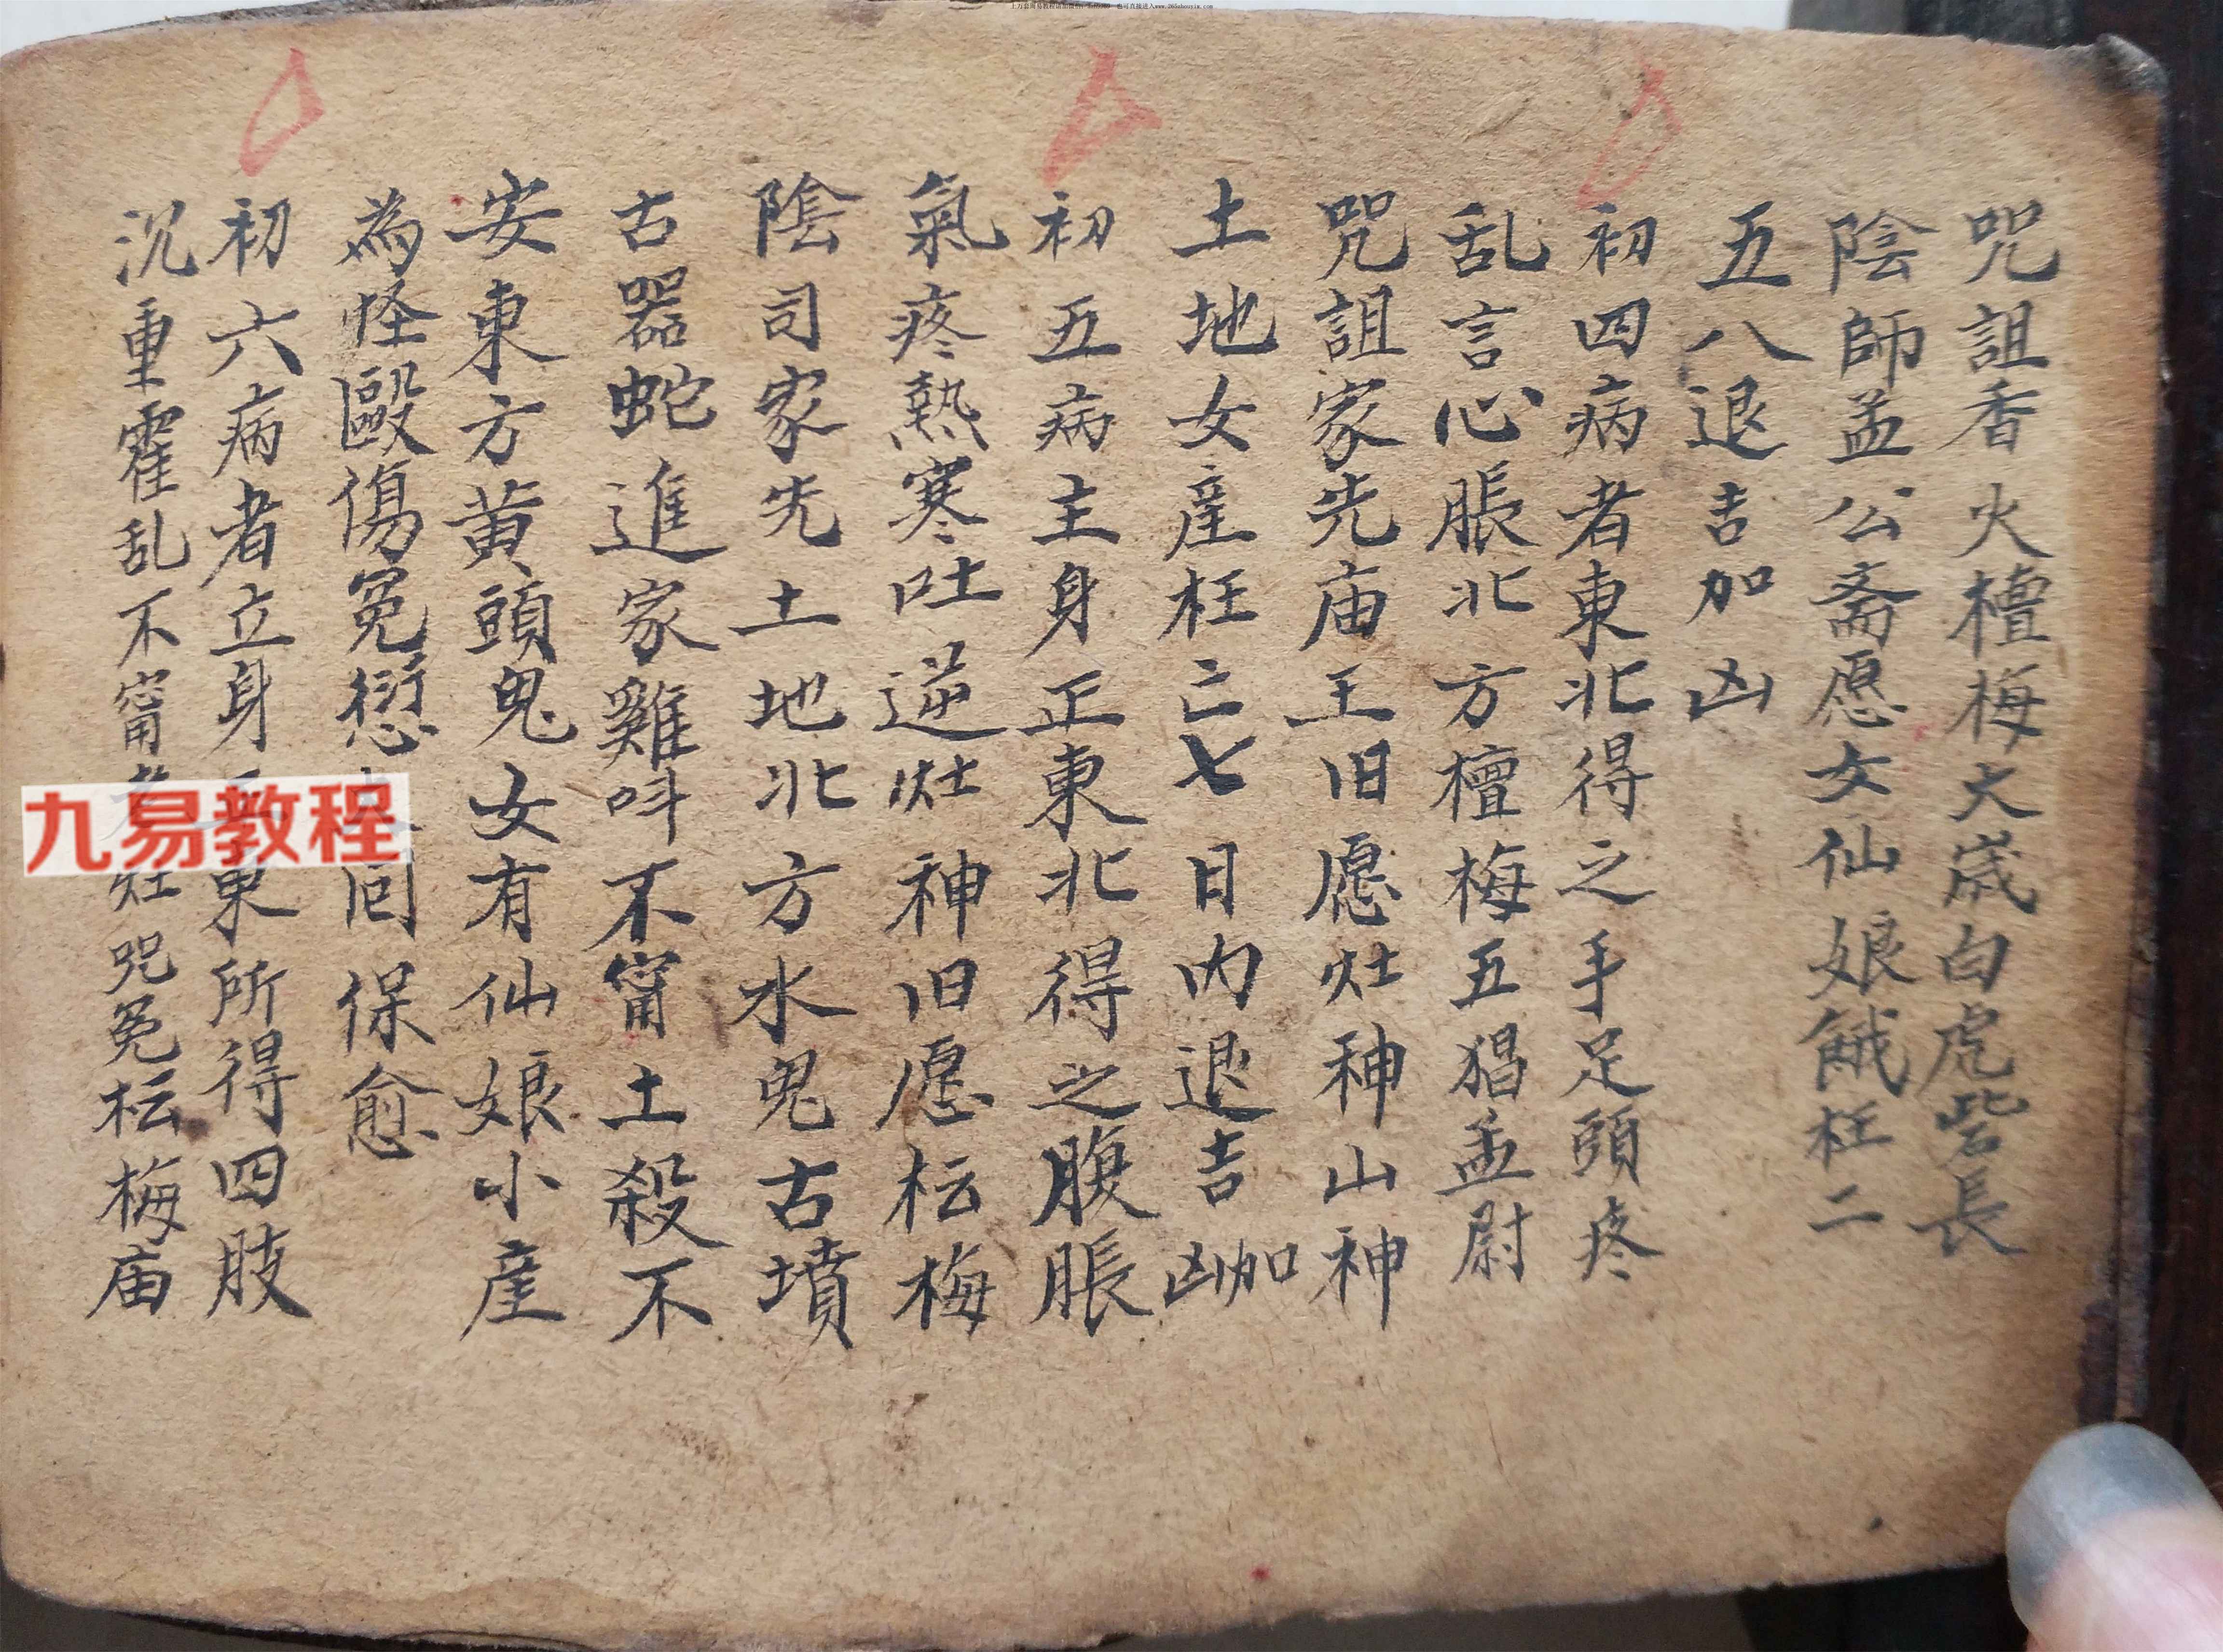 咒詛香火檀梅大歲白虎喾長
陰師孟公斋愿女仙娘餓枉二
五八退吉加凶
初四病者東北得之手足頭疼
乱言心脹北方檀梅五猖孟尉
咒詛家先庙王旧愿灶神山神
土地女産枉亡七日内退吉凶加
初五病主身正東北得之腹脹
氣疼熱寒吐逆灶神旧愿枟梅
陰司家先土地北方水鬼古墳
古器蛇進家雞呌不甯土殺不
安東方黄頭鬼女有仙娘小産
為怪毆傷冤愆保愈
初六病者立身東所得四肢
沉重霍乱不甯灶咒冤枟梅庙
九易教程